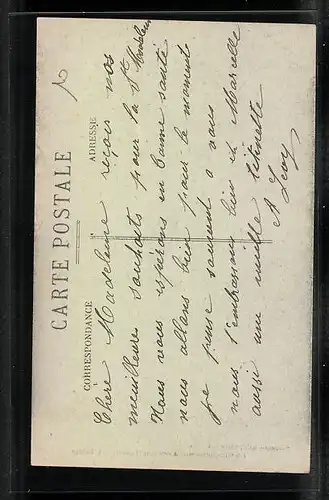 CARTE POSTALE
CORRESPONDANCE
ADRESSE
Chère Madeleine reçois nos
meilleures souhaits pour la Ste Madeleine
Nous vous espérons en bonne santé
nous allons bien pour le moment
je pense souvent a vous
nous t'embrassons bien et Marcelle
aussi une
A Levy